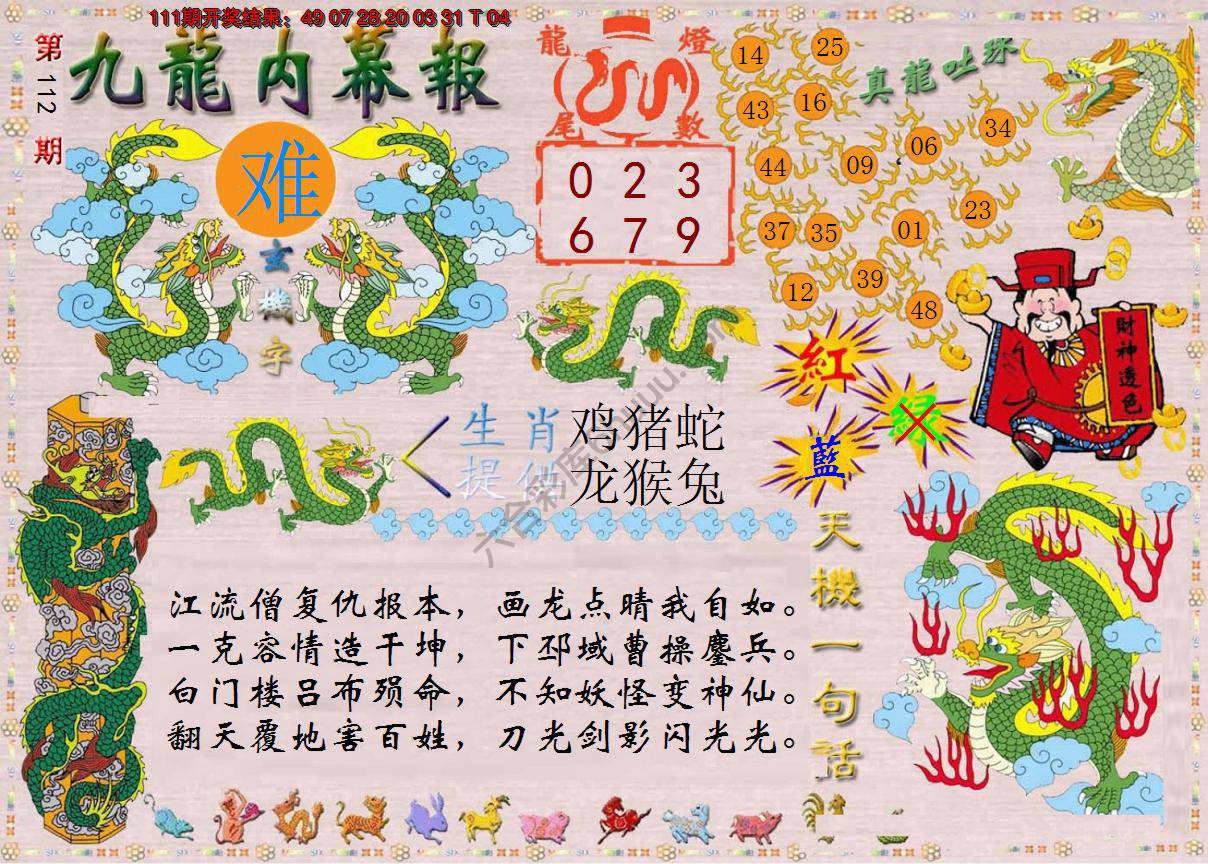 111期开奖结果：49 07 28 20 03 31 T 04
第112期
九龍内幕報
难
玄機字
龍燈
尾數
0 2 3
6 7 9
真龍吐珠
14 25
43 16
44 09 06 34
37 35 01 23
12 39 48
紅
綠
藍
財神透色
生肖提供
鸡猪蛇
龙猴兔
江流僧复仇报本，画龙点晴我自如。
一克容情造干坤，下邳域曹操鏖兵。
白门楼吕布殒命，不知妖怪变神仙。
翻天覆地害百姓，刀光剑影闪光光。
天機一句話